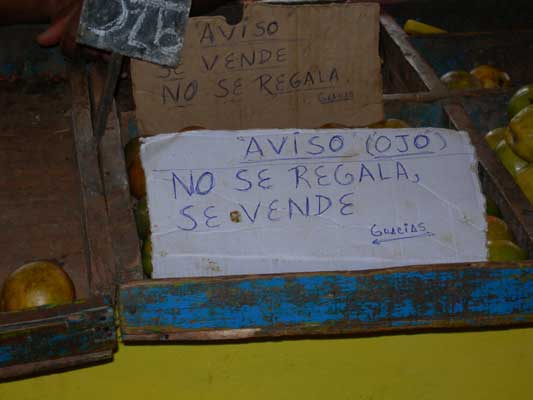 AVISO
SE VENDE
NO SE REGALA.
GRACIAS
AVISO (OJO)
NO SE REGALA,
SE VENDE
GRACIAS